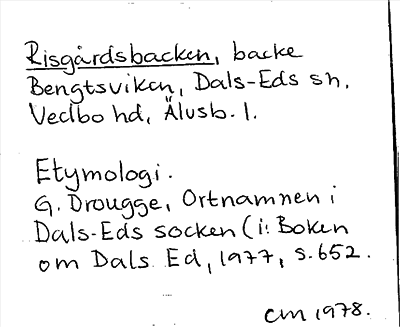 Risgårdsbacken, backe
Bengtsviken, Dals-Eds sn,
Vedbo hd, Älvsb. l.
Etymologi.
G. Drougge, Ortnamnen i
Dals-Eds socken (i: Boken
om Dals Ed, 1977, s. 652.
CM 1978.